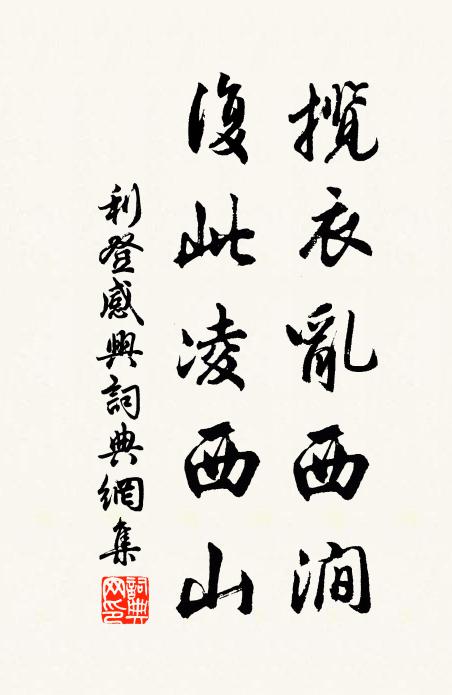 攬衣亂西澗
復此凌西山
利登感興詞典網集
詞典網印